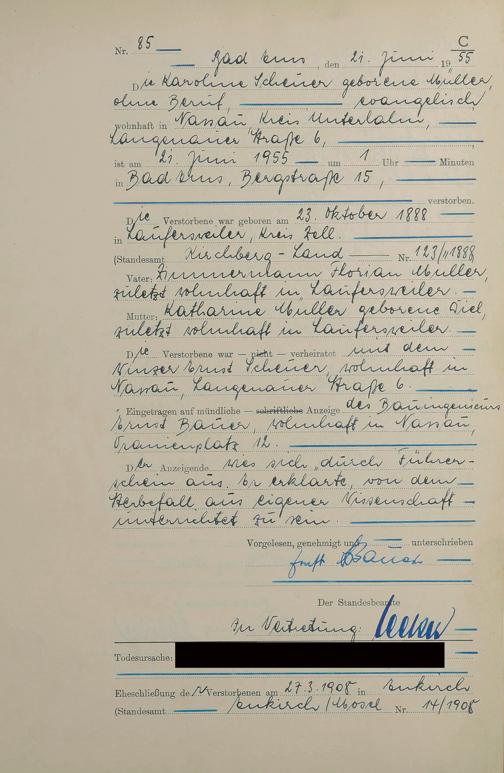 C
Nr. 85
Bad Ems, den 21. Juni 1955
Die Karoline Scheuer geborene Müller,
ohne Beruf, evangelisch
wohnhaft in Nassau Kreis Unterlahn,
Langenauer Straße 6,
ist am 21. Juni 1955 um 1 Uhr Minuten
in Bad Ems, Bergstraße 15,
verstorben.
Die Verstorbene war geboren am 23. Oktober 1888
in Laufersweiler, Kreis Zell.
(Standesamt Kirchberg-Land Nr. 123/1888
Vater: Zimmermann Florian Müller,
zuletzt wohnhaft in Laufersweiler.
Mutter: Katharine Müller geborene Diel,
zuletzt wohnhaft in Laufersweiler.
Die Verstorbene war — nicht — verheiratet mit dem
Winzer Ernst Scheuer, wohnhaft in
Nassau, Langenauer Straße 6.
Eingetragen auf mündliche — schriftliche Anzeige des Bauingenieurs
Ernst Bauer, wohnhaft in Nassau,
Oranienplatz 12.
Der Anzeigende wies sich durch Führer-
schein aus. Er erklärte, von dem
Sterbefall aus eigener Wissenschaft
unterrichtet zu sein.
Vorgelesen, genehmigt und unterschrieben
Ernst Bauer
Der Standesbeamte
In Vertretung:
Todesursache:
Eheschließung der Verstorbenen am 27.3.1908 in Enkirch
(Standesamt Enkirch/Mosel Nr. 14/1908